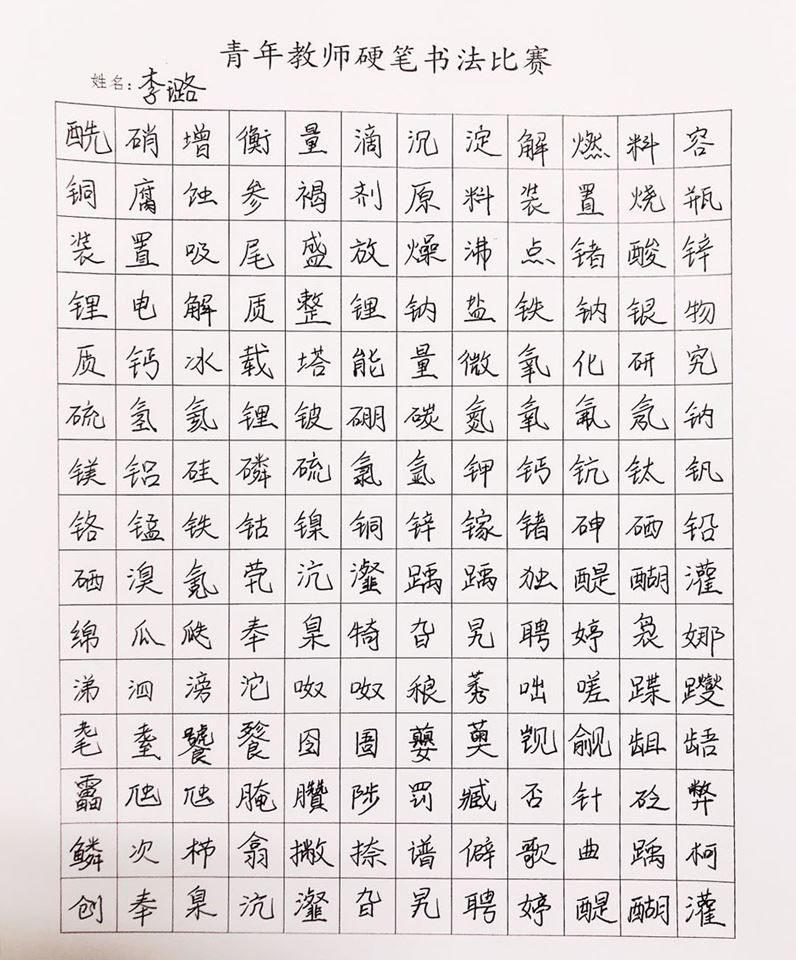 青年教师硬笔书法比赛
姓名：李璐
酰硝增衡量滴沉淀解燃料容
铜腐蚀参褐剂原料装置烧瓶
装置吸尾盛放燥沸点锗酸锌
锂电解质整锂钠盐铁钠银物
质钙冰载塔能量微氧化研究
硫氢氦锂铍硼碳氮氧氟氖钠
镁铝硅磷硫氯氩钾钙钪钛钒
铬锰铁钴镍铜锌镓锗砷硒铅
硒溴氪茕沆瀣踽踽独醍醐灌
绵瓜瓞奉臬犄旮旯聘婷袅娜
涕泗滂沱呶呶稂莠咄嗟蹀躞
耄耋饕餮囹圄蘡薁觊觎龃龉
靐尬腌臜陟罚臧否针砭弊
鳞次栉翕撇捺谱僻歌曲踽柯
创奉臬沆瀣旮旯聘婷醍醐灌